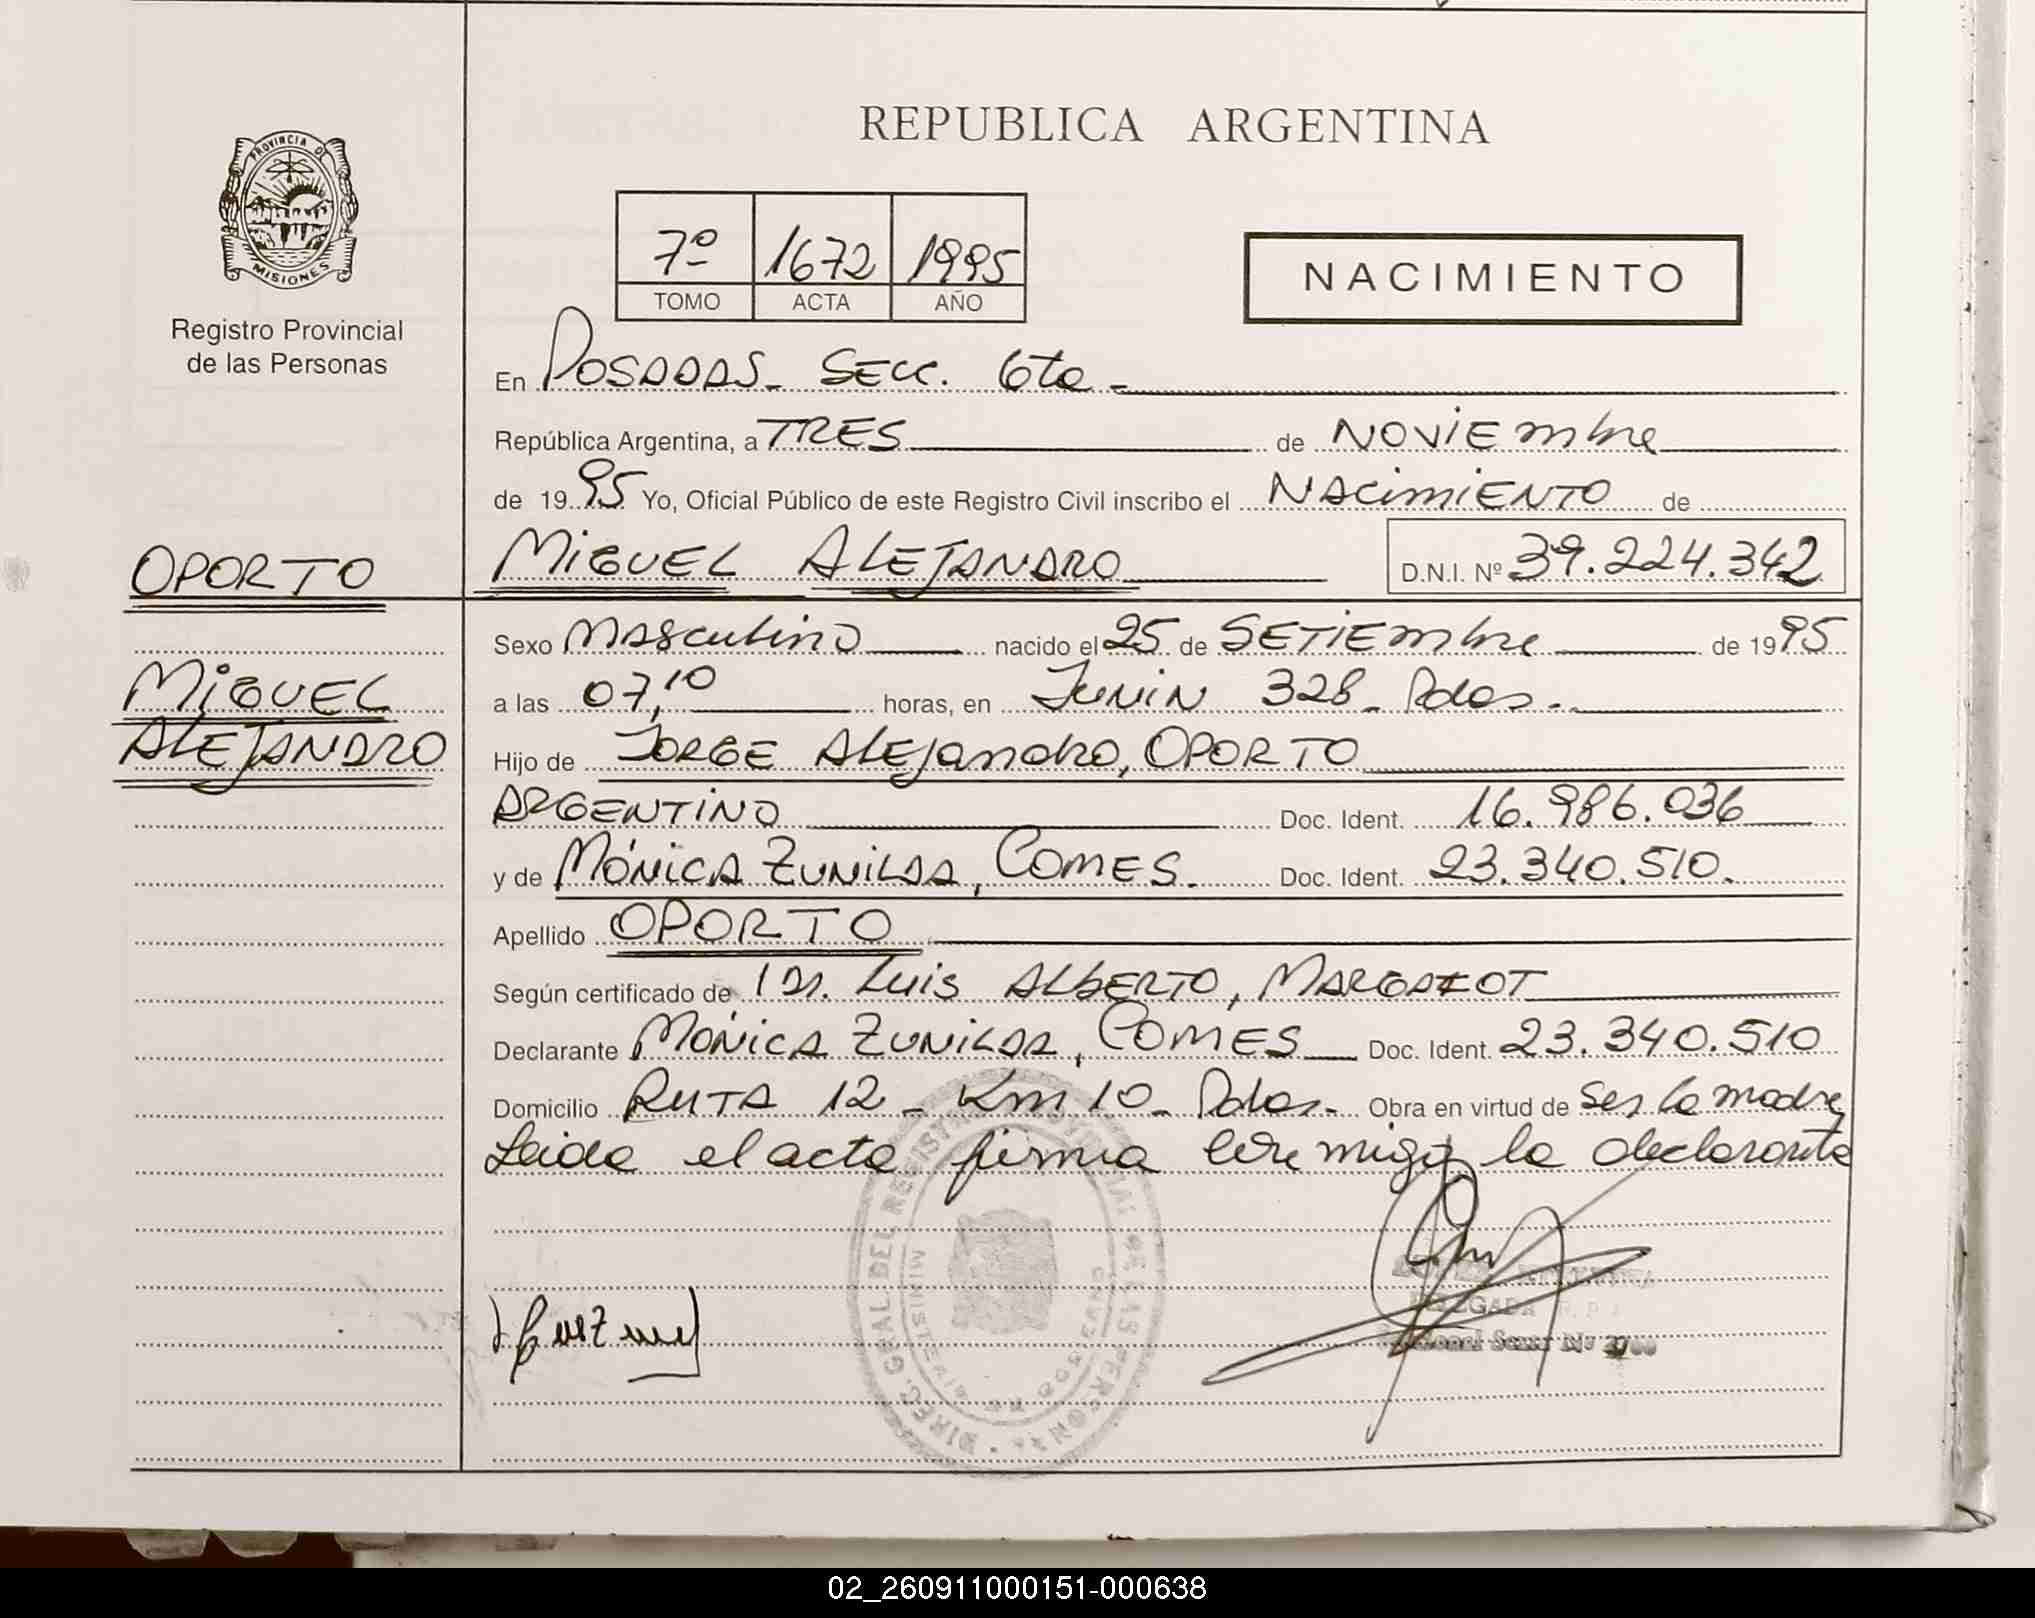 REPUBLICA ARGENTINA
PROVINCIA DE
MISIONES
Registro Provincial
de las Personas
7º 1672 1995
TOMO ACTA AÑO
NACIMIENTO
En POSADAS - SECC. 6ta -
República Argentina, a TRES de NOVIEmbre
de 1995 Yo, Oficial Público de este Registro Civil inscribo el NAcimiENTO de
OPORTO
MiGUEL ALEJANDRO D.N.I. Nº 39.224.342
Sexo MASculino nacido el 25 de SETiEmbre de 1995
MiGUEL
ALEJANDRO
a las 07,10 horas, en JUNIN 328 - Pdas -
Hijo de JORGE ALEJandro, OPORTO
ARGENTINO Doc. Ident. 16.986.036
y de MÓNICA ZUNILDA, COMES. Doc. Ident. 23.340.510.
Apellido OPORTO
Según certificado de Dr. Luis ALBERTO, 
Declarante MÓNICA ZUNILDA, COMES Doc. Ident. 23.340.510
Domicilio RUTA 12 - Km 10 - Pdas - Obra en virtud de ser la madre
Leida el acta firma conmigo la declarante
DIREC. GRAL. DEL REGISTRO PROVINCIAL DE LAS PERSONAS
DELEGADA R.P.
02_260911000151-000638